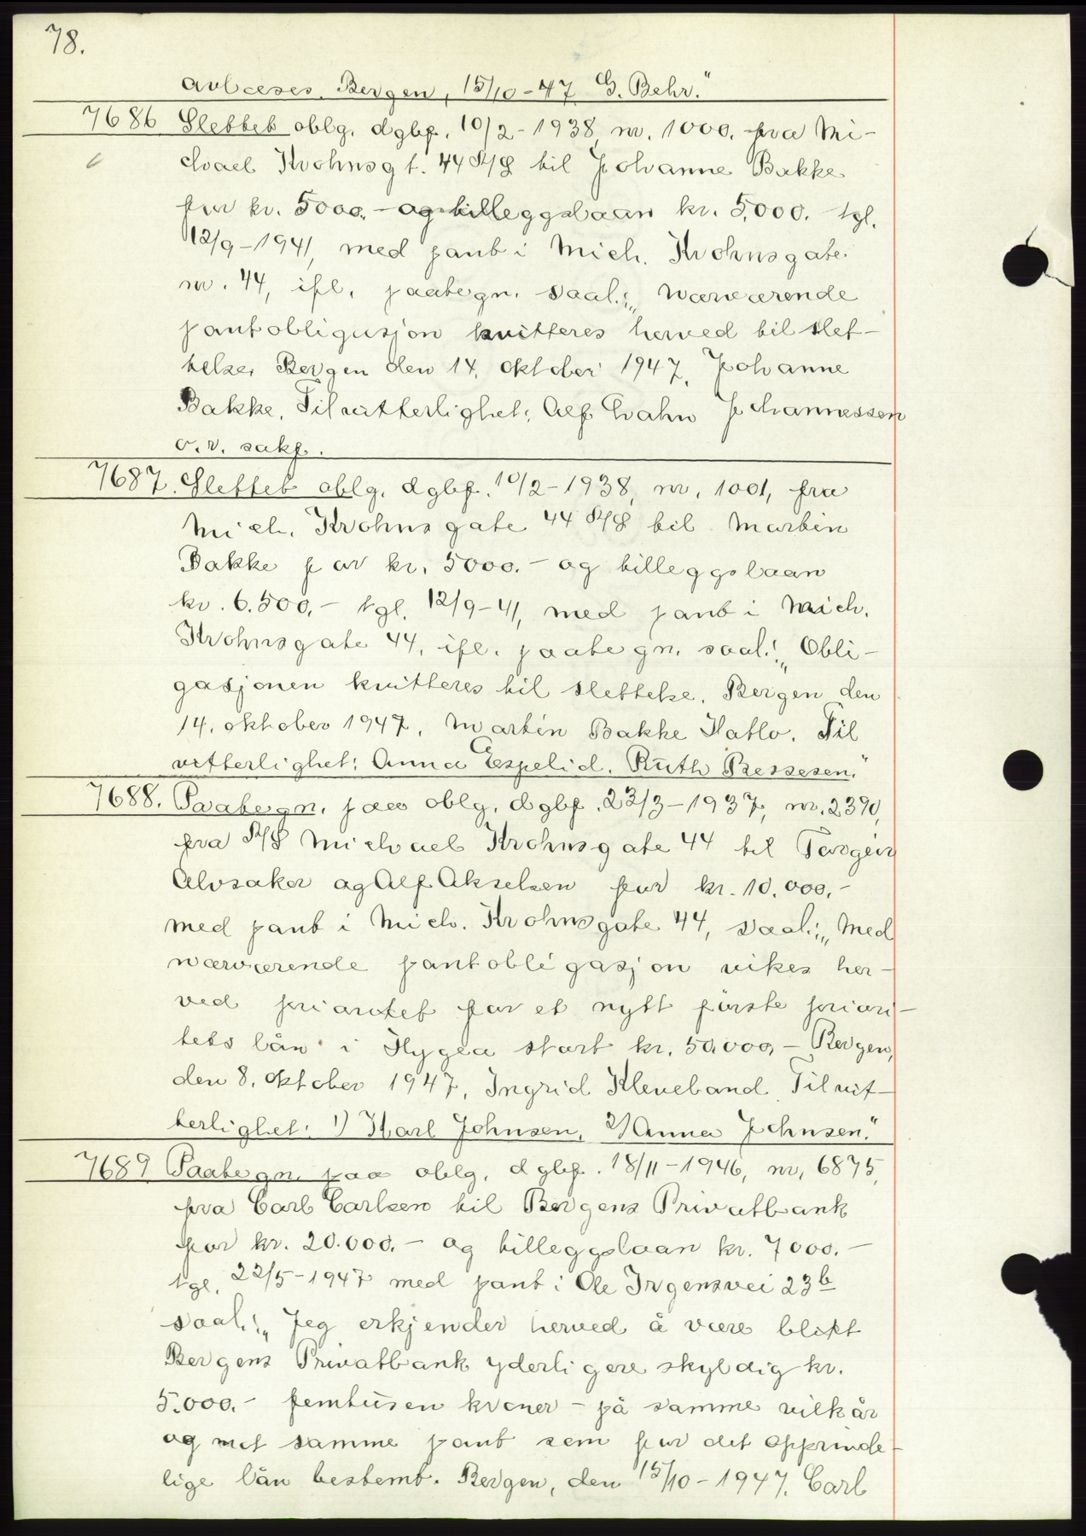 78.
avlæses. Bergen, 15/10-47 G. Behr."
7686 Slettet oblg. dgbf. 10/2-1938, nr. 1000. fra Mi-
chael Krohnsgt. 44 A/S til Johanne Bakke
for kr. 5000.- og tilleggslaan kr. 5.000.- tgl.
12/9-1941, med pant i Mich. Krohnsgate
nr. 44, ifl. paategn. saal.: „Nærværende
pantobligasjon kvitteres herved til slet-
telse. Bergen den 14. oktober 1947. Johanne
Bakke. Til vitterlighet: Alf Johannessen
o.r. sakf.
7687. Slettet oblg. dgbf. 10/2-1938, nr. 1001, fra
Mich. Krohnsgate 44 A/S til Martin
Bakke for kr. 5000.- og tilleggslaan
kr. 6.500.- tgl. 12/9-41, med pant i Mich.
Krohnsgate 44, ifl. paategn. saal.: „Obli-
gasjonen kvitteres til slettelse. Bergen den
14. oktober 1947. Martin Bakke Hatlo. Til
vitterlighet: Anna Espelid. Ruth Bessesen."
7688. Paategn. paa oblg. dgbf. 23/3-1937, nr. 2390,
fra A/S Michael Krohnsgate 44 til Torgeir
Alvsaker og Alf Akselsen for kr. 10.000.-
med pant i Mich. Krohnsgate 44, saal.: „Med
nærværende pantobligasjon vikes her-
ved prioritet for et nytt første priori-
tets lån i Hygea stort kr. 50.000.- Bergen,
den 8. oktober 1947. Ingrid Kleveland. Til vit-
terlighet: 1) Karl Johnsen. 2) Anna Johnsen."
7689 Paategn. paa oblg. dgbf. 18/11-1946, nr. 6875,
fra Carl Carlsen til Bergens Privatbank
for kr. 20.000.- og tilleggslaan kr. 7000.-
tgl. 22/5-1947 med pant i Ole Irgensvei 23b
saal.: „Jeg erkjender herved å være blitt
Bergens Privatbank yderligere skyldig kr.
5.000.- femtusen kroner - på samme vilkår
og mot samme pant som for det opprinde-
lige lån bestemt. Bergen, den 15/10-1947. Carl